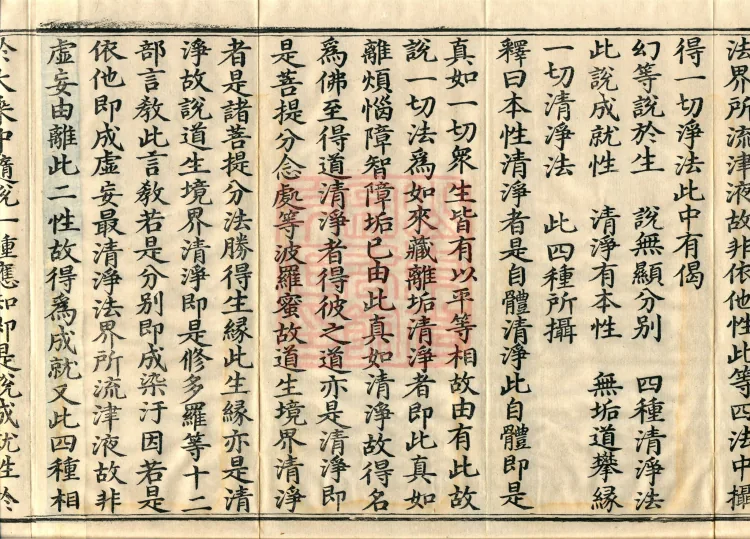 法界所流津液故非依他性此等四法中攝
得一切淨法此中有偈
幻等說於生　說無顯分別　四種清淨法
此說成就性　清淨有本性　無垢道攀緣
一切清淨法　此四種所攝
釋曰本性清淨者是自體清淨此自體即是
真如一切眾生皆有以平等相故由有此故
說一切法為如來藏離垢清淨者即此真如
離煩惱障智障垢已由此真如清淨故得名
為佛至得道清淨者得彼之道亦是清淨即
是菩提分念處等波羅蜜故道生境界清淨
者是諸菩提分法勝得生緣此生緣亦是清
淨故說道生境界清淨即是修多羅等十二
部言教此言教若是分別即成染汙因若是
依他即成虛妄最清淨法界所流津液故非
虛妄由離此二性故得為成就又此四種相
於大乘中隨說一種應知即是說成就性於